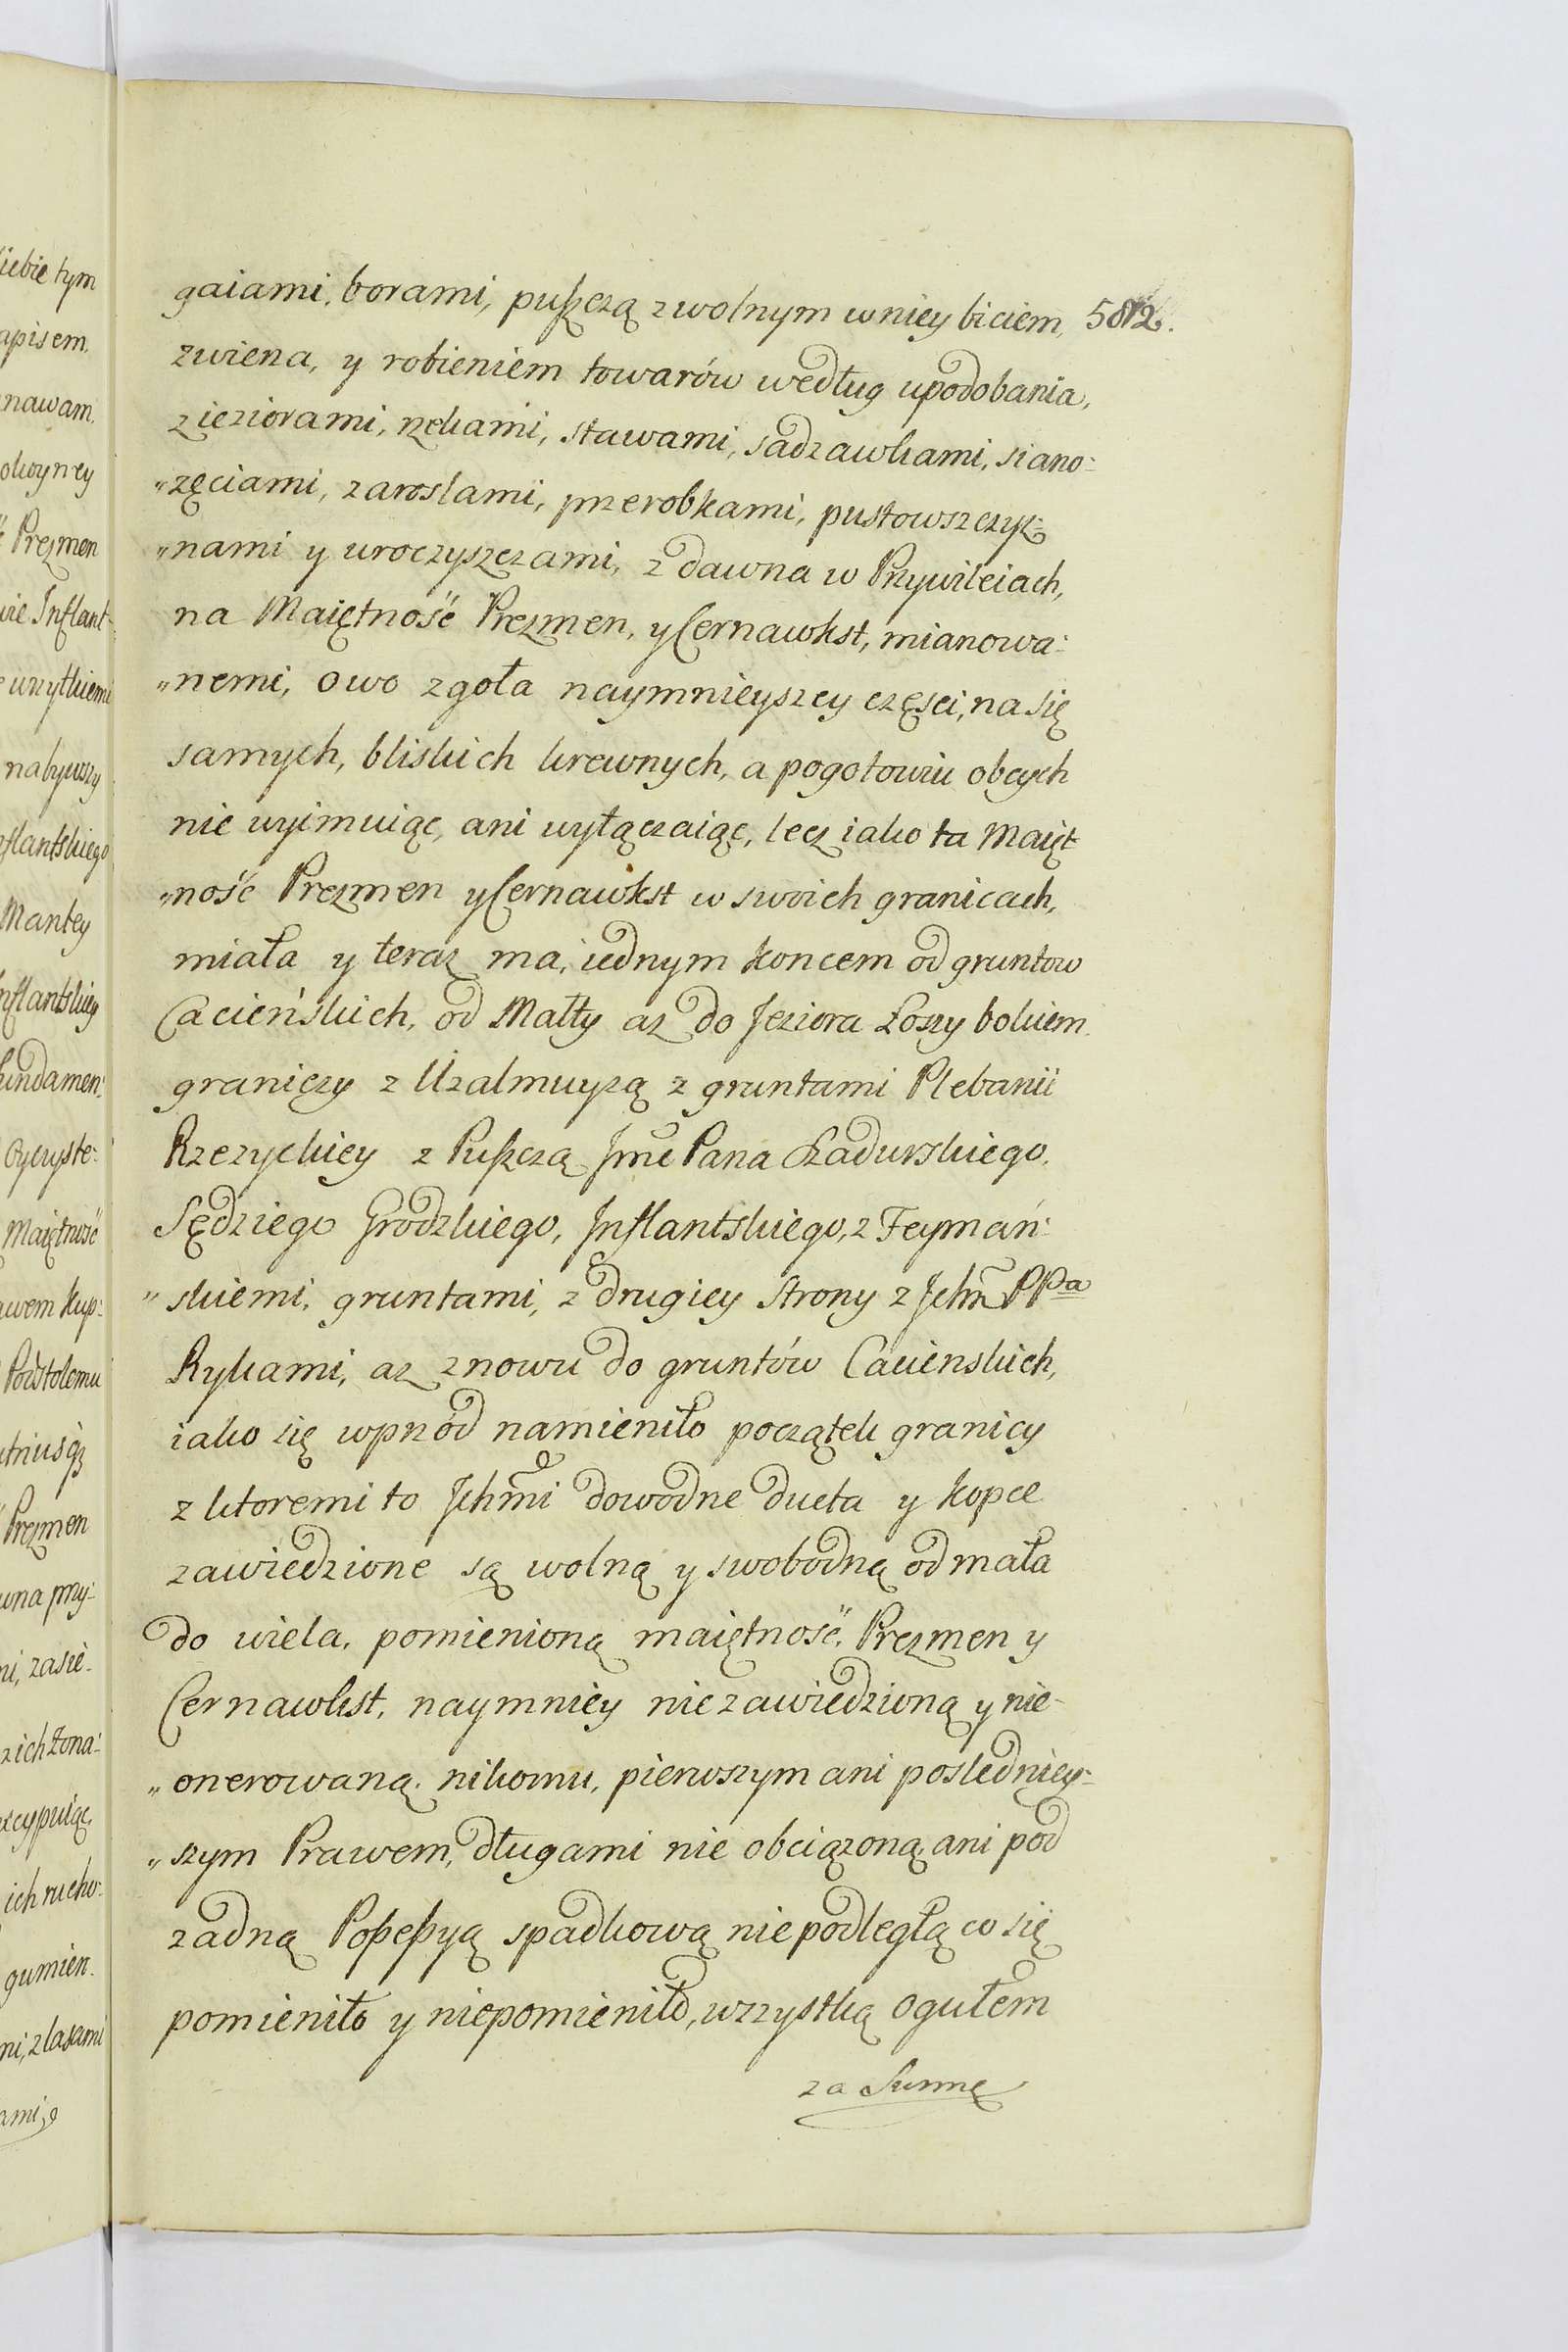 gaiami, borami, puszczą z wolnym w niey biciem, 5812.
zwiena, y robieniem towarów według upodobania,
z ieziorami, rzekami, stawami, sadzawkami, siano:
„zęciami, zaroslami, przerobkami, pustowszczyz:
„nami y uroczyszczami, z dawna w Przywileiach,
na Maiętność Prezmen, y Cernawkst, mianowa:
„nemi, owo zgoła naymnieyszey części, na się
samych, bliskich krewnych, a pogotowiu obcych
nie wyimuiąc, ani wyłączaiąc, lecz iako ta Maięt
„ność Prezmen y Cernawkst w swoich granicach,
miała y teraz ma, iednym koncem od gruntow
Cacieńskich, od Malty az do Jeziora Łoszy bokiem
graniczy z Uzalmuyzą z gruntami Plebanii
Rzezyckiey z Puszczą Jmć Pana Szadurskiego,
Sędziego Grodzkiego, Inflantskiego, z Feymań:
„skiemi, gruntami, z drugiey strony z Jchm PPa
Rykami, az znowu do gruntów Cacienskich,
iako się wprzód namieniło początek granicy
z ktoremi to Jchmi dowodne ducta y kopce
zawiedzione są wolną y swobodną od mała
do wiela, pomienioną maiętność, Prezmen y
Cernawkst, naymniey nie zawiedzioną y nie-
„onerowaną, nikomu, pierwszym ani posledniey:
„szym Prawem, długami nie obciązoną, ani pod
zadną Possessyą spadkową nie podległą co się
pomieniło y niepomieniło, wszystką ogułem
za Summę